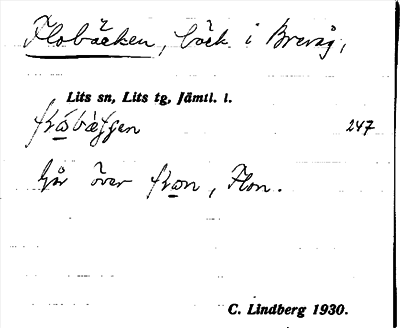 Flobäcken, bäck i Brevåg,
Lits sn, Lits tg, Jämtl. l.
247
går över , Flon.
C. Lindberg 1930.